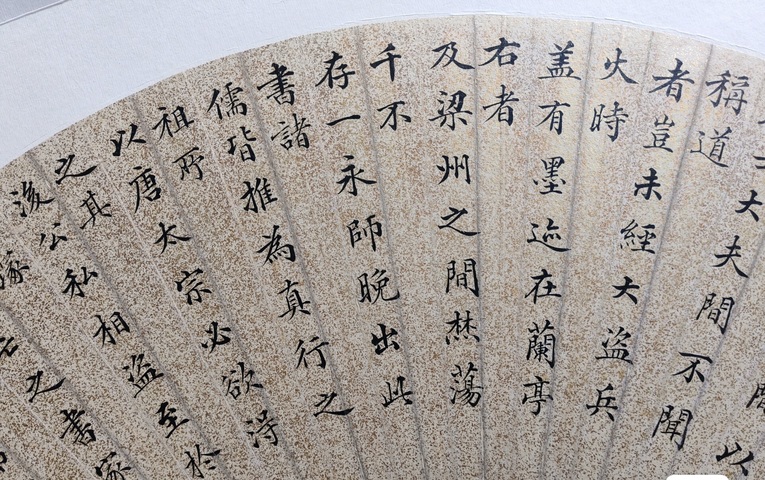 以
士大夫間不聞
稱道
者豈未經大盜兵
火時
盖有墨迹在蘭亭
右者
及梁州之間焚蕩
千不
存一永師晚出此
書諸
儒皆推為真行之
祖所
以唐太宗必欲得
之其
後公私相盜至於
塚
之書家